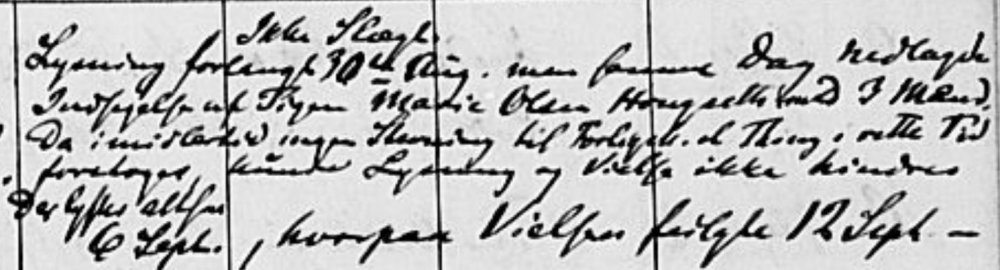 Ikke Slægt.
Lysning forlangt 30te Aug. men samme Dag nedlagde
Indsigelse ved Pigen Marie Olsen Hougseth med 3 Mænd.
Da imidlertid ingen Stevning til Forligels. el. Thing i rette Tid
foretoges, kunde Lysning og Vielse ikke hindres
Der lystes altsaa
6 Septr. , hvorpaa Vielsen fulgte 12 Sept –